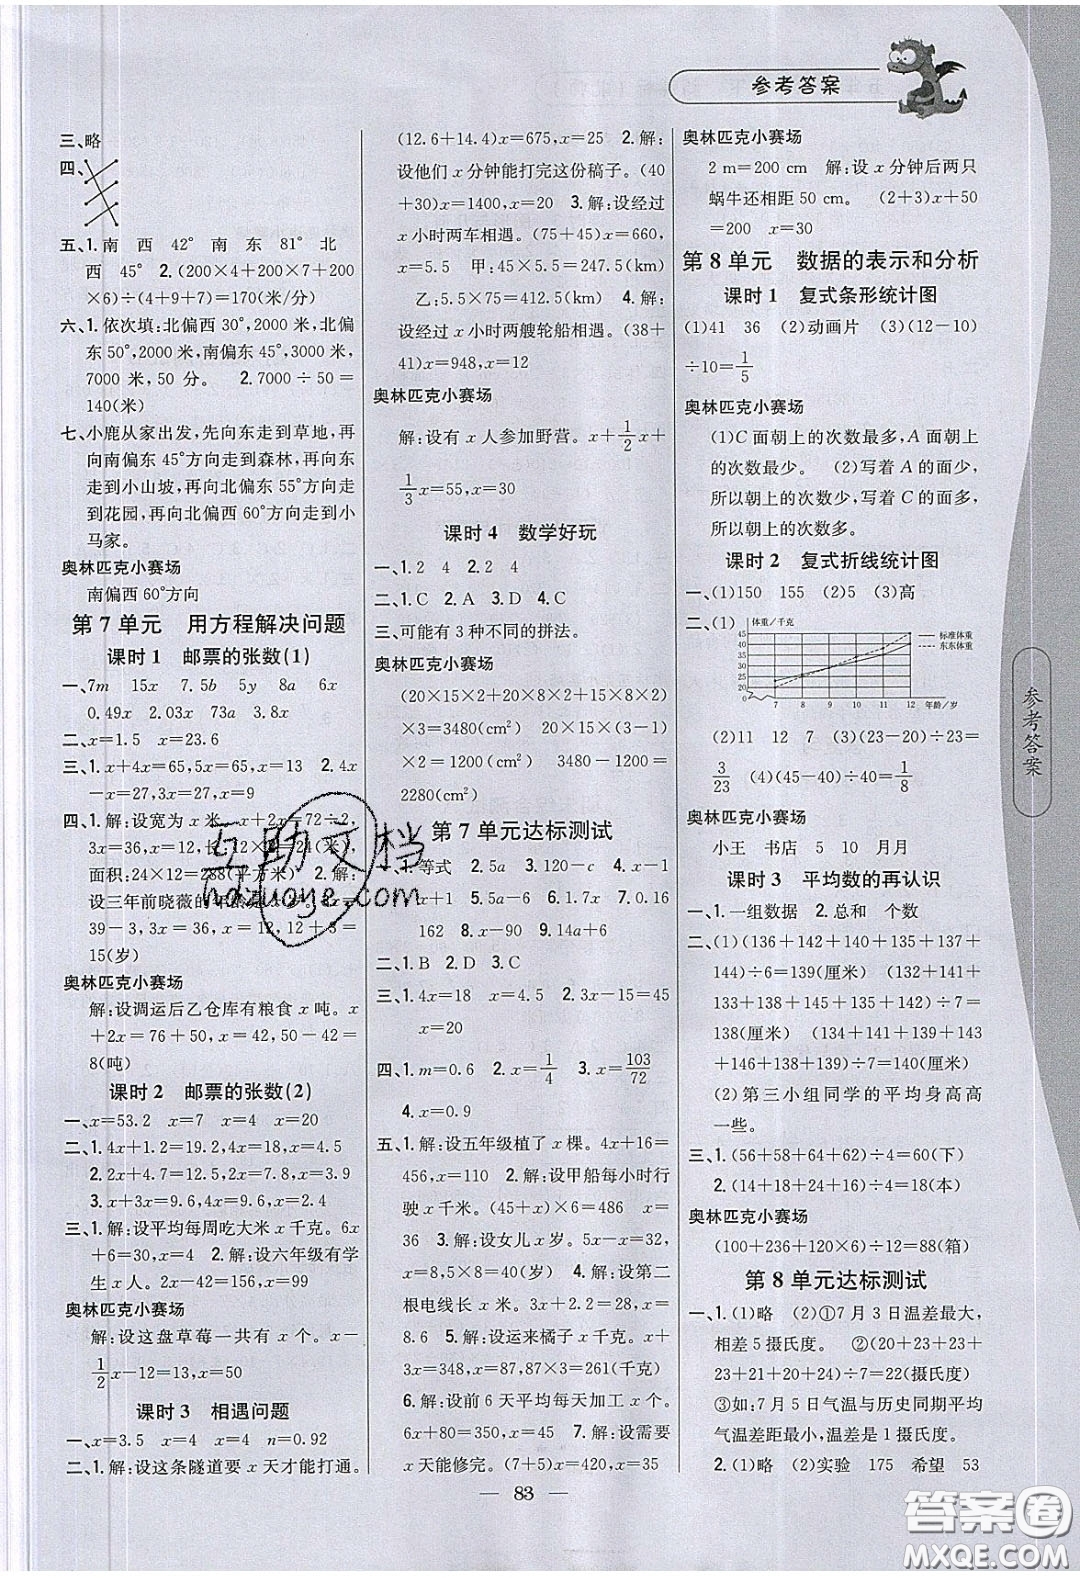 参考答案
三、略
四、
五、1.南 西 42° 南 东 81° 北
西 45° 2.(200×4+200×7+200
×6)÷(4+9+7)=170(米/分)
六、1.依次填:北偏西30°,2000米,北偏
东50°,2000米,南偏东45°,3000米,
7000米,50分。 2.7000÷50=
140(米)
七、小鹿从家出发,先向东走到草地,再
向南偏东45°方向走到森林,再向东
走到小山坡,再向北偏东55°方向走
到花园,再向北偏西60°方向走到小
马家。
奥林匹克小赛场
南偏西60°方向
第7单元 用方程解决问题
课时1 邮票的张数(1)
一、7m 15x 7.5b 5y 8a 6x
0.49x 73a 3.8x
二、x=1.5 x=23.6
三、1.x+4x=65,5x=65,x=13 2.4x
-x=27,3x=27,x=9
四、1.解:设宽为x米。x+2x=72÷2,
3x=36,x=12,长:12×2=24(米),
面积:24×12=288(平方米) 2.解:
设三年前晓薇的年龄是x岁。
39-3,3x=36,x=12,12+3=
15(岁)
奥林匹克小赛场
解:设调运后乙仓库有粮食x吨。x
+2x=76+50,x=42,50-42=
8(吨)
课时2 邮票的张数(2)
一、x=53.2 x=7 x=4 x=20
二、1.4x+1.2=19.2,4x=18,x=4.5
2.2x+4.7=12.5,2x=7.8,x=3.9
3.x+3x=9.6,4x=9.6,x=2.4
三、1.解:设平均每周吃大米x千克。6x
+6=90,x=14 2.解:设六年级有学
生x人。2x-42=156,x=99
奥林匹克小赛场
解:设这盘草莓一共有x个。x-
1/2x-12=13,x=50
课时3 相遇问题
一、x=3.5 x=4 x=4 n=0.92
二、1.解:设这条隧道要x天才能打通。
(12.6+14.4)x=675,x=25 2.解:
设他们x分钟能打完这份稿子。(40
+30)x=1400,x=20 3.解:设经过
x小时两车相遇。(75+45)x=660,
x=5.5 甲:45×5.5=247.5(千米)
乙:5.5×75=412.5(千米) 4.解:
设经过x小时两艘轮船相遇。(38+
41)x=948,x=12
奥林匹克小赛场
解:设有x人参加野营。x+1/2x+
1/3x=55,x=30
课时4 数学好玩
一、1.2 4 2.2 4
二、1.C 2.A 3.D 4.C
三、可能有3种不同的拼法。
奥林匹克小赛场
(20×15×2+20×8×2+15×8×2)
×3=3480(cm²) 20×15×(3-1)
×2=1200(cm²) 3480-1200=
2280(cm²)
第7单元达标测试
一、1.等式 2.5a 3.120-c 4.x-1
x+1 5.5a-6 6.1.7x 7.0.16
162 8.x-90 9.14a+6
二、1.B 2.D 3.C
三、1.4x=18 x=4.5 2.3x-15=45
x=20
四、1.m=0.6 2.x=1/4 3.x=103/72
4.x=0.9
五、1.解:设五年级植了x棵。4x+16=
456,x=110 2.解:设甲船每小时行
驶x千米。(45+x)×6=486 x=
36 3.解:设女儿x岁。5x-x=32,
4x=32,x=8,5x=40 妈妈:8+
42=50(岁) 4.解:设第二
根电线长x米。
8.6 5.解:设运来橘子x千克。x+
3x=348,x=87,87×3=261(千克)
6.解:设前6天平均每天加工x个。
6x+80=350,x=45 7.解:设需要
x天能修完。(7+5)x=420,x=35
奥林匹克小赛场
2 m=200 cm 解:设x分钟后两只
蜗牛还相距50厘米。(2+3)x+50
=200 x=30
第8单元 数据的表示和分析
课时1 复式条形统计图
(1)41 36 (2)动画片 (3)(12-10)
÷10=1/5
奥林匹克小赛场
(1)C面朝上的次数最多,A面朝上
的次数最少。 (2)写着A的面少,
所以朝上的次数少,写着C的面多,
所以朝上的次数多。
课时2 复式折线统计图
一、(1)150 155 (2)5 (3)高
二、(1)
体重/千克
45 40 35 30 25 20
标准体重
东东体重
7 8 9 10 11 12 年龄/岁
(2)11 12 7 (3)(35-32)÷32=
3/23 (4)(45-40)÷40=1/8
奥林匹克小赛场
小王 书店 5 10 月月
课时3 平均数的再认识
一、1.一组数据 2.总和 个数
二、(1)(136+142+140+135+137+
144)÷6=139(厘米) (132+141
+133+138+145+140+137)÷7=
138(厘米)
+146+138+143)÷6=140(厘米)
(2)第三小组同学的平均身高高
一些。
三、1.(56+58+64+62)÷4=60(下)
2.(14+18+24+16)÷4=18(本)
奥林匹克小赛场
(100+236+120×6)÷12=88(箱)
第8单元达标测试
一、1.(1)略 (2)①7月3日温差最大,
相差5摄氏度。 ②(20+23+23+
23+21+20+24)÷7=22(摄氏度)
③如:7月5日气温与历史同期的平
均气温差距最大,相差3摄氏度。
2.(1)略 (2)实验 175 希望 53
参考答案
83
互助文档
hdzuoye.com
答案圈
MXQE.COM